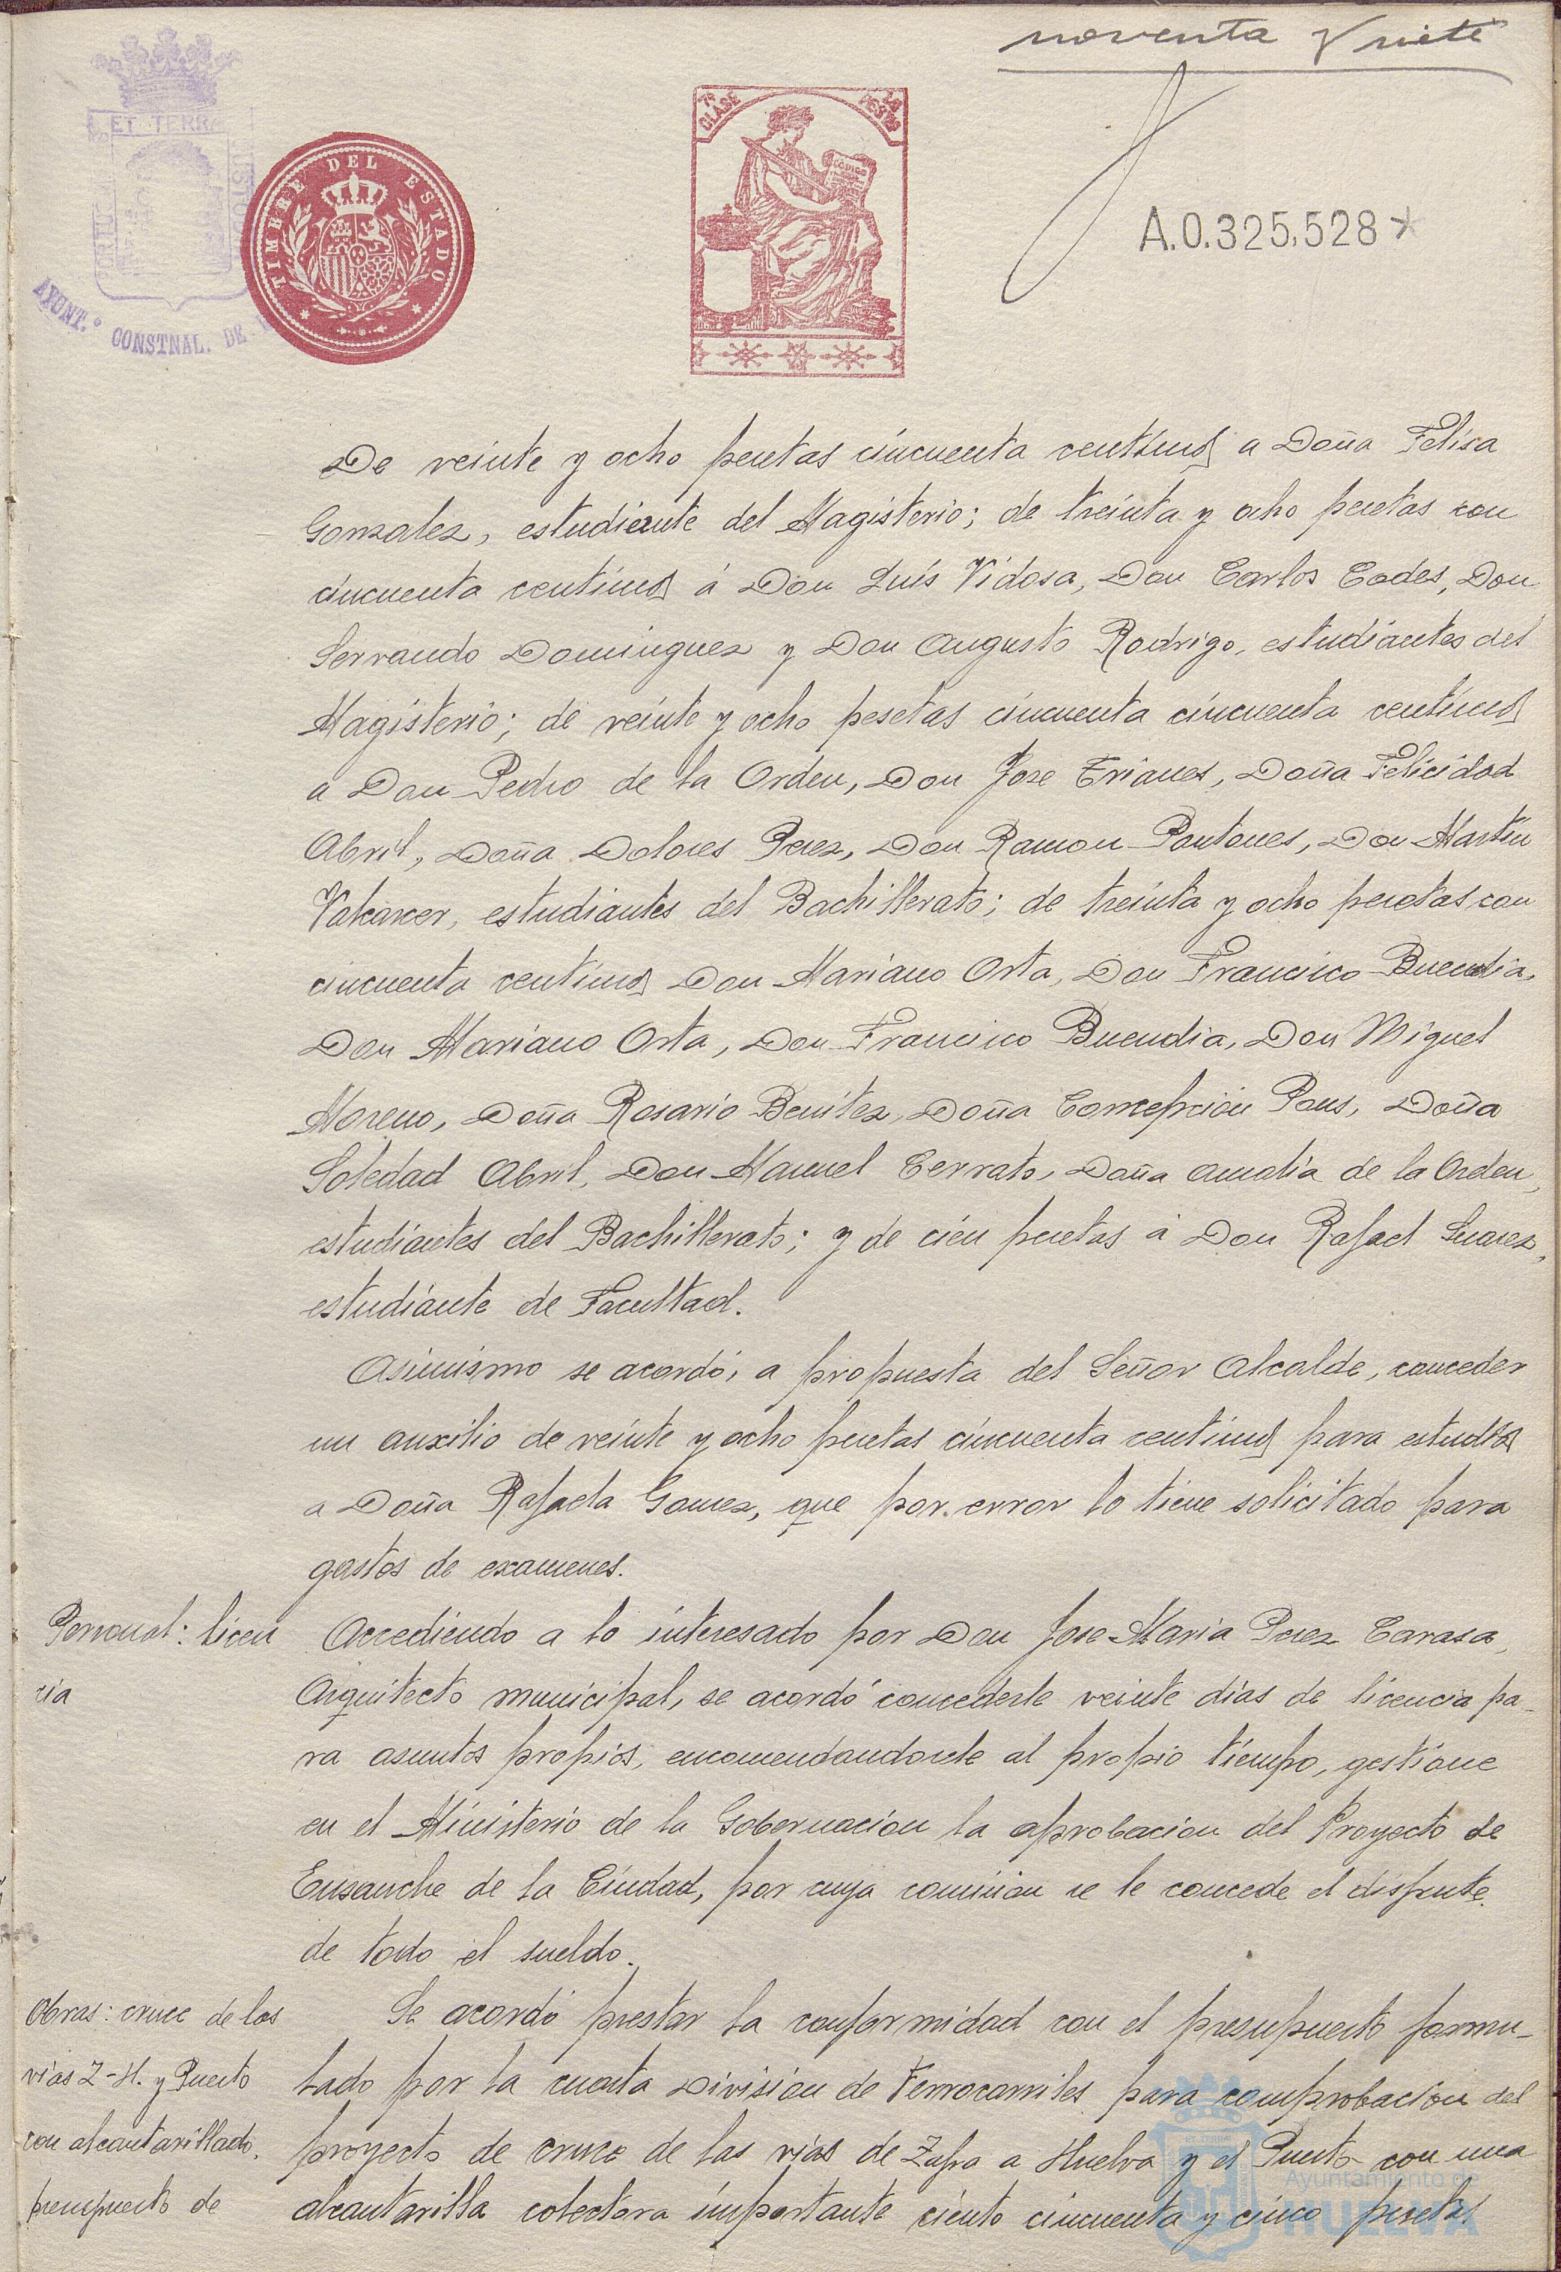 noventa y siete
ET TERRA
CUSTODIA
PORTUS
AYUNT.º CONSTNAL. DE
TIMBRE DEL ESTADO
7ª CLASE
PESTAS
CODIGO
A.0.325,528*
De veinte y ocho pesetas cincuenta centimos a Doña Felisa
Gonzalez, estudiante del Magisterio; de treinta y ocho pesetas con
cincuenta centimos á Don Luis Vidosa, Don Carlos Codes, Don
Servando Dominguez y Don Augusto Rodrigo, estudiantes del
Magisterio; de veinte y ocho pesetas cincuenta cincuenta centimos
a Don Pedro de la Orden, Don Jose Trianes, Doña Felicidad
Abril, Doña Dolores Perez, Don Ramon Pontones, Don Martin
Valcarcer, estudiantes del Bachillerato; de treinta y ocho pesetas con
cincuenta centimos Don Mariano Orta, Don Francisco Buendia,
Don Mariano Orta, Don Francisco Buendia, Don Miguel
Moreno, Doña Rosario Benitez, Doña Concepcion Pons, Doña
Soledad Abril, Don Manuel Cerrato, Doña Amalia de la Orden,
estudiantes del Bachillerato; y de cien pesetas á Don Rafael Suarez,
estudiante de Facultad.
Asimismo se acordó, a propuesta del Señor Alcalde, conceder
un auxilio de veinte y ocho pesetas cincuenta centimos para estudios
a Doña Rafaela Gomez, que por error lo tiene solicitado para
gastos de examenes.
Personal: licen
cia
Accediendo a lo interesado por Don Jose Maria Perez Carasa,
Arquitecto municipal, se acordó concederle veinte dias de licencia pa-
ra asuntos propios, encomendandosele al propio tiempo, gestione
en el Ministerio de la Gobernacion la aprobacion del Proyecto de
Ensanche de la Ciudad, por cuya comision se le concede el disfrute
de todo el sueldo.
Obras: cruce de las
vias Z-H. y Puerto
con alcantarillado,
presupuesto de
Se acordó prestar la conformidad con el presupuesto formu-
lado por la cuarta Division de Ferrocarriles para comprobacion del
proyecto de cruce de las vias de Zafra a Huelva y el Puerto con una
alcantarilla colectora importante ciento cincuenta y cinco pesetas
Ayuntamiento de
HUELVA